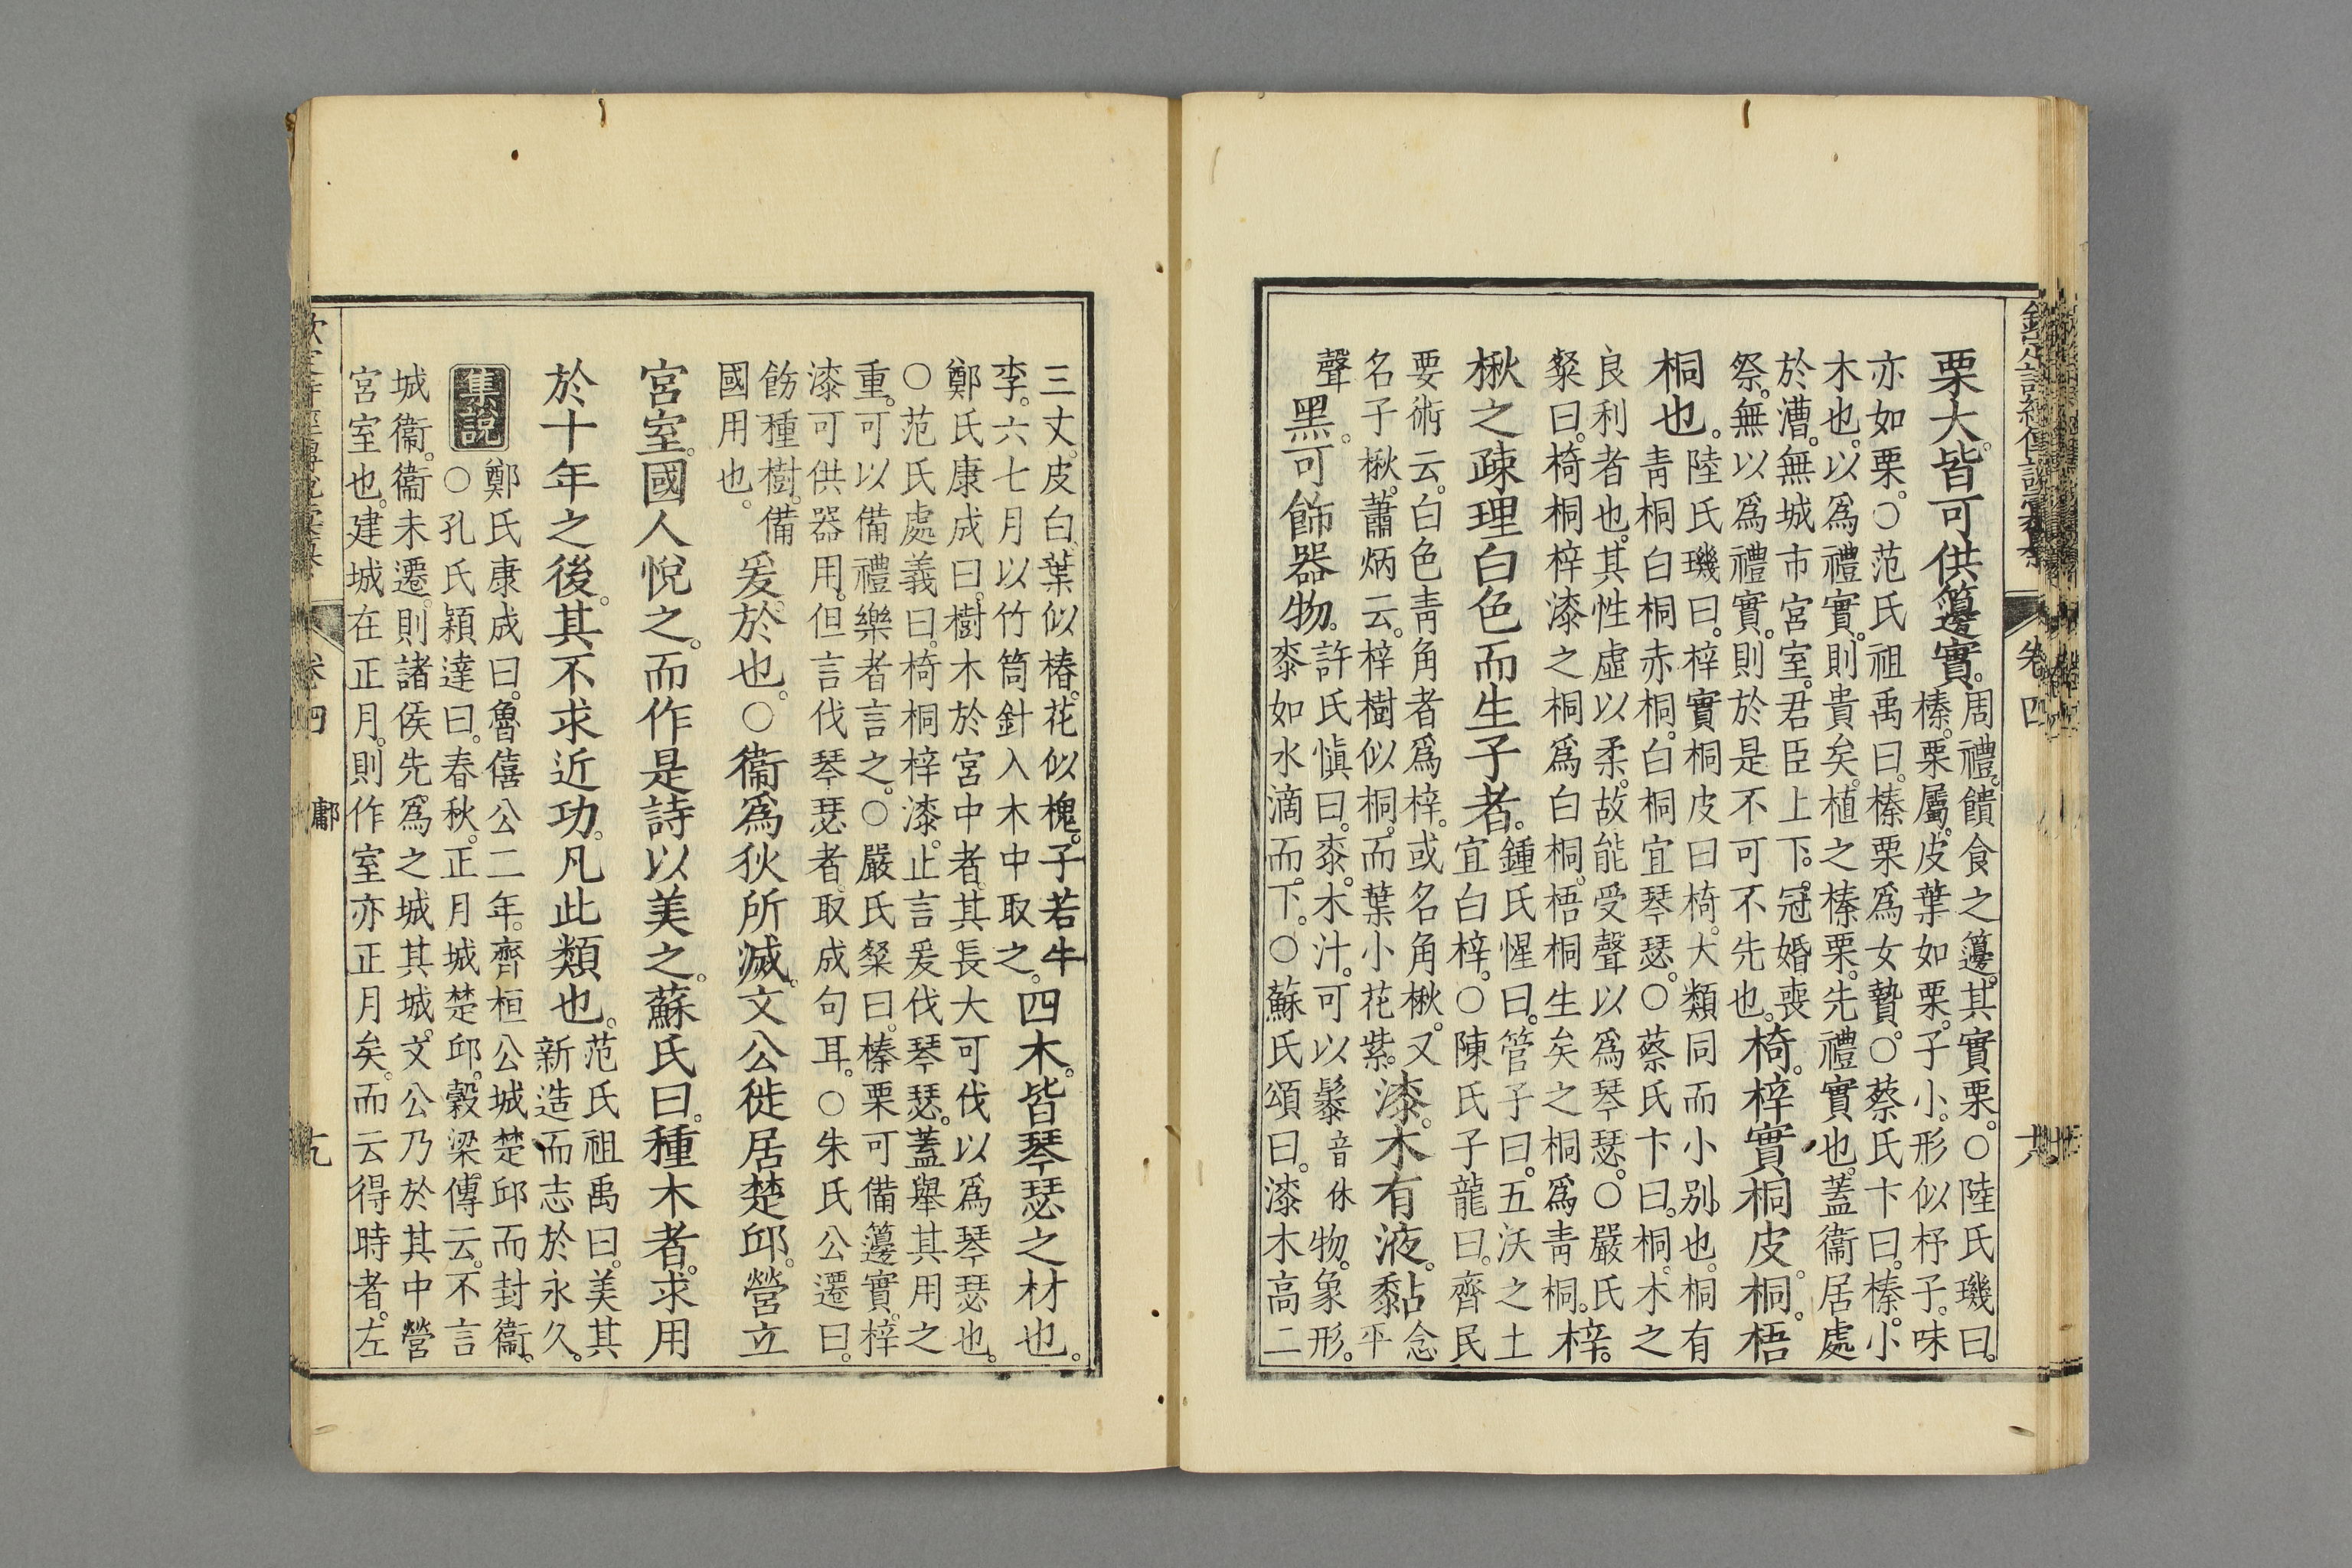 栗大。皆可供籩實。
周禮。饋食之籩。其實栗。○陸氏璣曰。
榛。栗屬。皮葉如栗。子小。形似杼子。味
亦如栗。○范氏祖禹曰。榛栗爲女贄。○蔡氏卞曰。榛。小
木也。以爲禮實。則貴矣。植之榛栗。先禮實也。蓋衞居處
於漕。無城市宮室。君臣上下。冠婚喪
祭。無以爲禮實。則於是不可不先也。
椅。梓實桐皮。桐。梧
桐也。
陸氏璣曰。梓實桐皮曰椅。大類同而小別也。桐有
靑桐白桐赤桐。白桐宜琴瑟。○蔡氏卞曰。桐。木之
良利者也。其性虛以柔。故能受聲以爲琴瑟。○嚴氏
粲曰。椅桐梓漆之桐爲白桐。梧桐生矣之桐爲靑桐。
梓。
楸之疎理白色而生子者。
鍾氏惺曰。管子曰。五沃之土
宜白梓。○陳氏子龍曰。齊民
要術云。白色靑角者爲梓。或名角楸。又
名子楸。蕭炳云。梓樹似桐。而葉小花紫。
漆。木有液。黏
念
平
聲
黑。可飾器物。
許氏愼曰。桼。木汁。可以髹音休物。象形。
桼如水滴而下。○蘇氏頌曰。漆木高二
卷四
三丈。皮白。葉似椿。花似槐。子若牛
李。六七月以竹筒針入木中取之。
四木。皆琴瑟之材也。
鄭氏康成曰。樹木於宮中者。其長大可伐以爲琴瑟也。
○范氏處義曰。椅桐梓漆。止言爰伐琴瑟。蓋舉其用之
重。可以備禮樂者言之。○嚴氏粲曰。榛栗可備籩實。梓
漆可供器用。但言伐琴瑟者。取成句耳。○朱氏公遷曰。
飭種樹。備
國用也。
爰。於也。○衞爲狄所滅。文公徙居楚邱。營立
宮室。國人悅之。而作是詩以美之。蘇氏曰。種木者。求用
於十年之後。其不求近功。凡此類也。
范氏祖禹曰。美其
新造而志於永久。
集說
鄭氏康成曰。魯僖公二年。齊桓公城楚邱而封衞。
○孔氏穎達曰。春秋。正月城楚邱。穀梁傳云。不言
城衞。衞未遷。則諸侯先爲之城其城。文公乃於其中營
宮室也。建城在正月。則作室亦正月矣。而云得時者。左
卷四
鄘